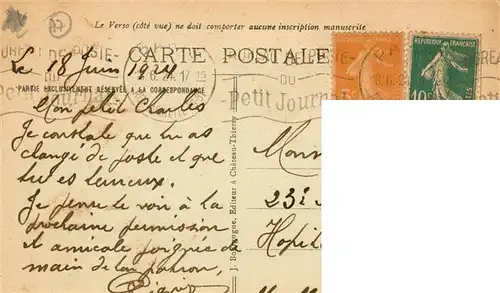 Le Verso (côté vue) ne doit comporter aucune inscription manuscrite
CARTE POSTALE
Le 18 Juin 1924
PARTIE EXCLUSIVEMENT RÉSERVÉE A LA CORRESPONDANCE
DU
Petit Journal
RÉPUBLIQUE FRANÇAISE
10c
Mon petit Charles
Je constate que tu as
changé de poste et que
tu es heureux.
Je pense te voir à ta
prochaine permission
et amicale poignée de
main de ton patron,
J. Bourgogne, Editeur à Château-Thierry
Mon
23e
Hopi